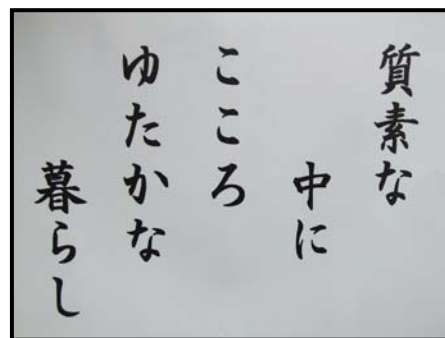 質素な
中に
こころ
ゆたかな
暮らし